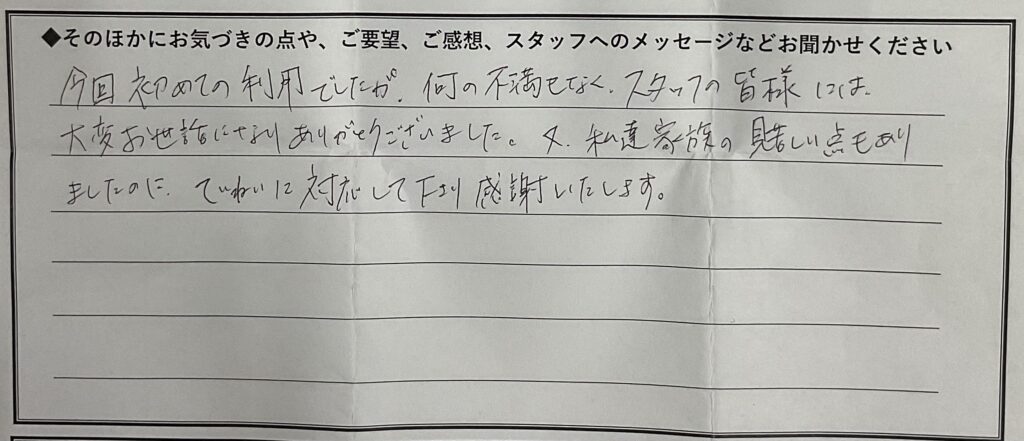 ◆そのほかにお気づきの点や、ご要望、ご感想、スタッフへのメッセージなどお聞かせください
今回初めての利用でしたが、何の不満もなく、スタッフの皆様には、
大変お世話になりありがとうございました。又、私達家族の見苦しい点もあり
ましたのに、ていねいに対応して下さり感謝いたします。